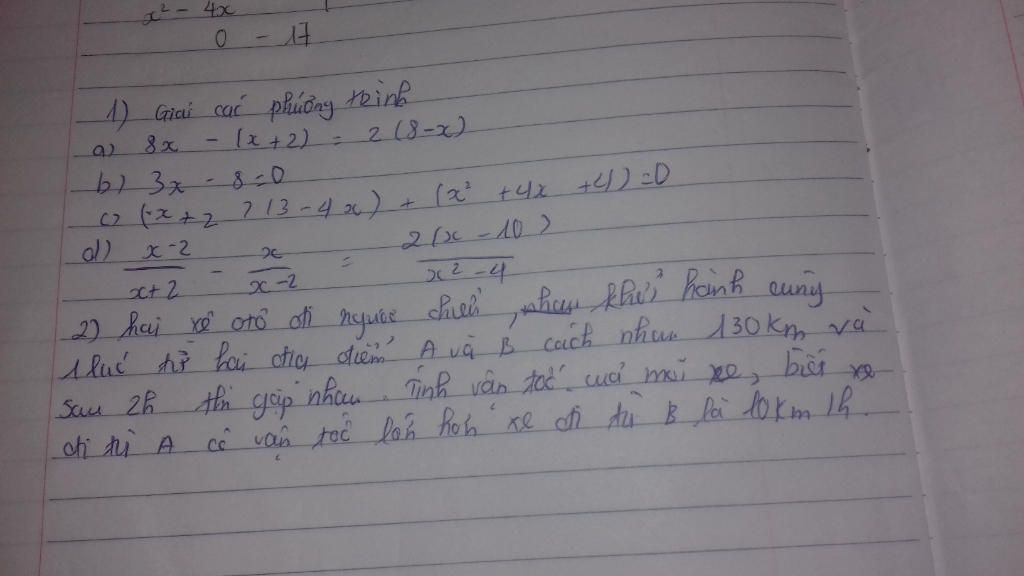 x² - 4x
0 - 17
1) Giai các phương trình
a) 8x - (x+2) = 2(8-x)
b) 3x - 8 = 0
c) (-x+2)(3-4x) + (x² + 4x + 4) = 0
d) (x-2)/(x+2) - x/(x-2) = 2(x-10)/(x²-4)
2) hai xe otô đi ngươc chiều, khởi hành cùng
1 luc từ hai địa điểm A và B cách nhau 130 Km và
sau 2h thì gặp nhau. Tính vân tốc cuả mỗi xe, biết xe
đi từ A có vận tốc lớn hơn xe đi từ B là 10 Km/h.